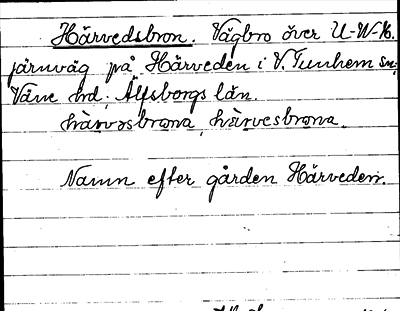 Härvedsbron. Vägbro över U-W-H.
järnväg på Härveden i V. Tunhem sn,
Väne hd, Älfsborgs län.
hàrvəsbrơna, hàrvesbrơna.
Namn efter gården Härveden.